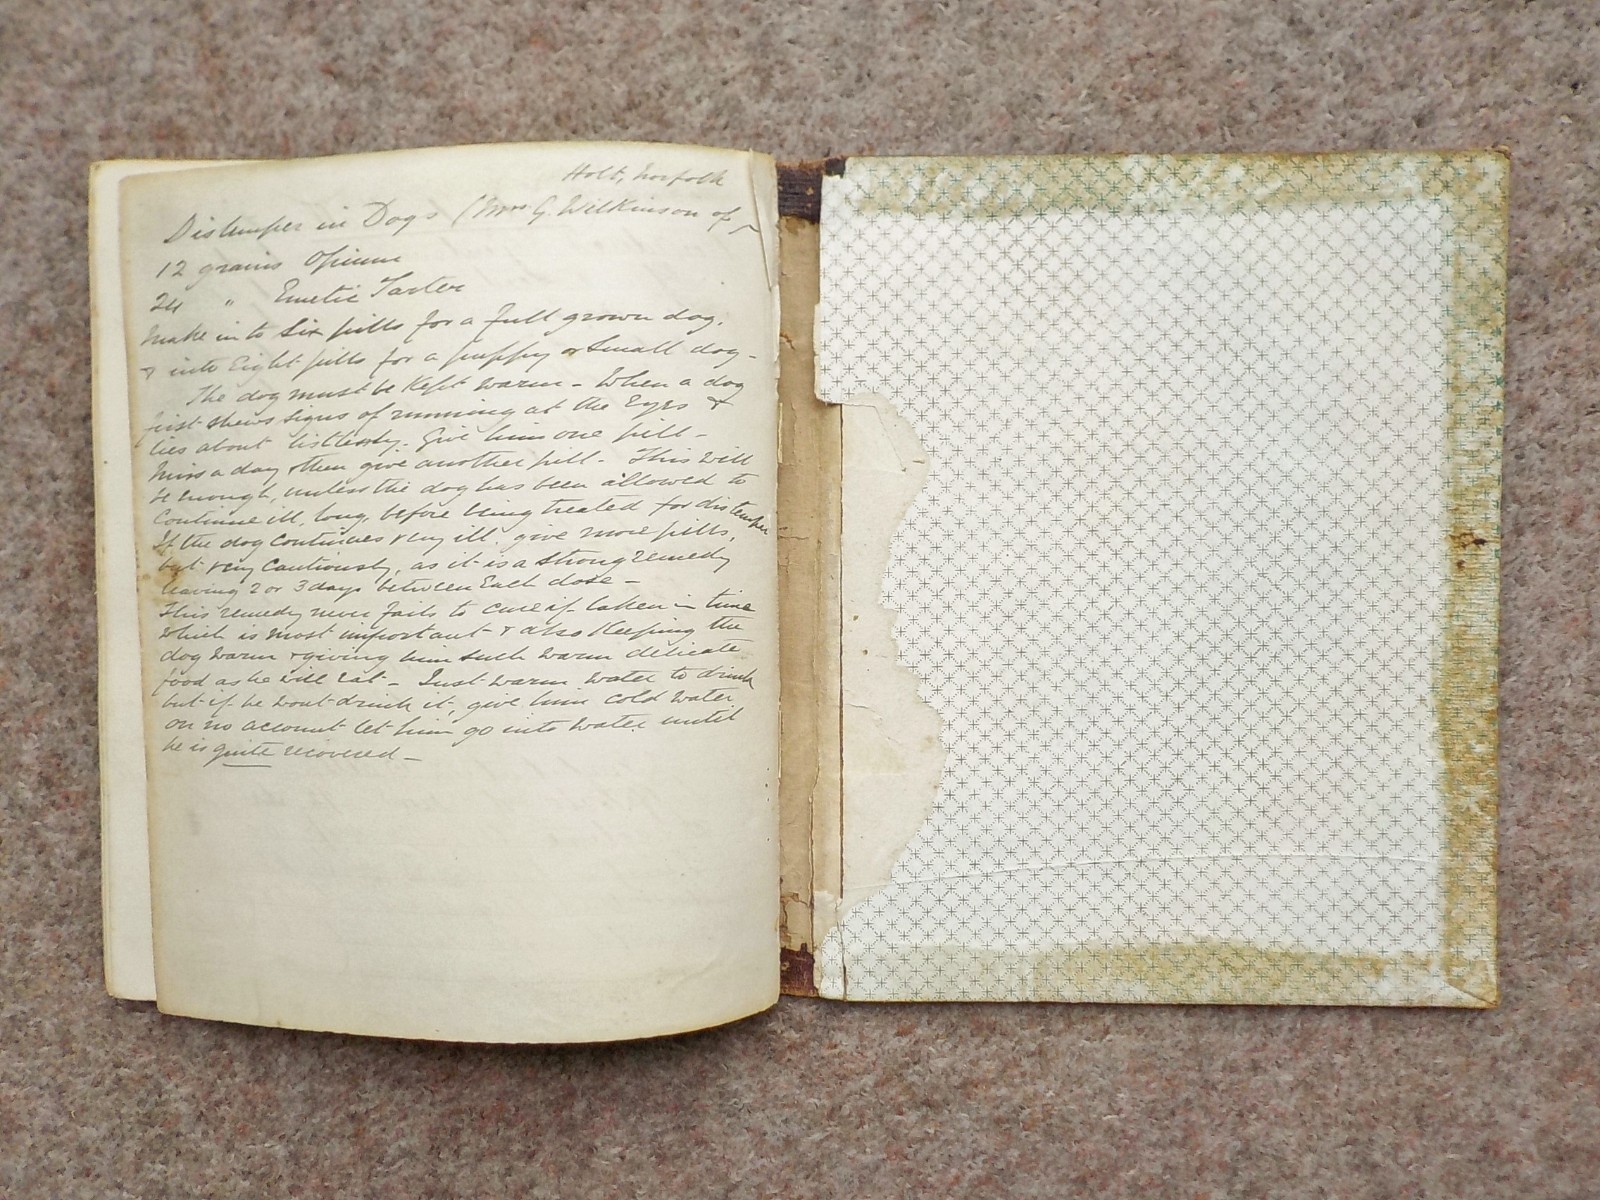 Holt, Norfolk
Distemper in Dogs (Mrs G. Wilkinson of
12 grains Opium
24 " Emetic Tarter
Make into Six pills for a full grown dog,
& into Eight pills for a puppy or Small dog -
The dog must be Kept warm - When a dog
first shews signs of running at the Eyes &
lies about listlessly. Give him one pill -
Miss a day & then give another pill - This will
be enough, unless the dog has been allowed to
Continue ill, long, before being treated for distemper
If the dog continues very ill, give more pills,
but very Cautiously, as it is a strong remedy
leaving 2 or 3 days between Each dose -
This remedy never fails to cure if taken in time
which is most important & also Keeping the
dog warm & giving him such warm delicate
food as he will Eat - Just warm water to drink
but if he wont drink it, give him cold water
on no account let him go into water until
he is quite recovered -